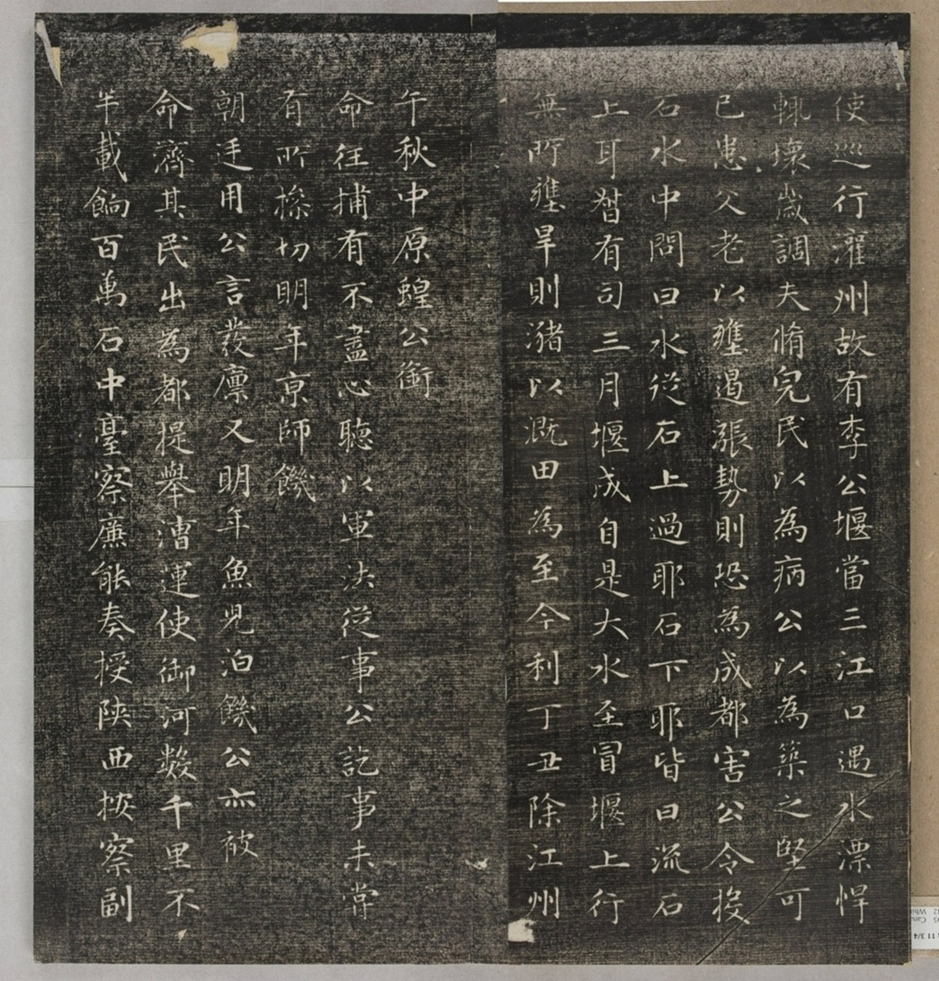 使巡行灌州故有李公堰當三江口遇水漂悍
輒壞歲調夫脩完民以為病公以為築之堅可
已患父老以壅遏漲勢則恐為成都害公令投
石水中問曰水從石上過耶石下耶皆曰流石
上耳督有司三月堰成自是大水至冒堰上行
無所壅旱則瀦以溉田為至今利丁丑除江州
午秋中原蝗公銜
命往捕有不盡心聽以軍法從事公訖事未嘗
有所搽切明年京師饑
朝廷用公言發廩又明年魚兒泊饑公亦被
命濟其民出為都提舉漕運使御河數千里不
半載餉百萬石中臺察廉能奏授陝西按察副